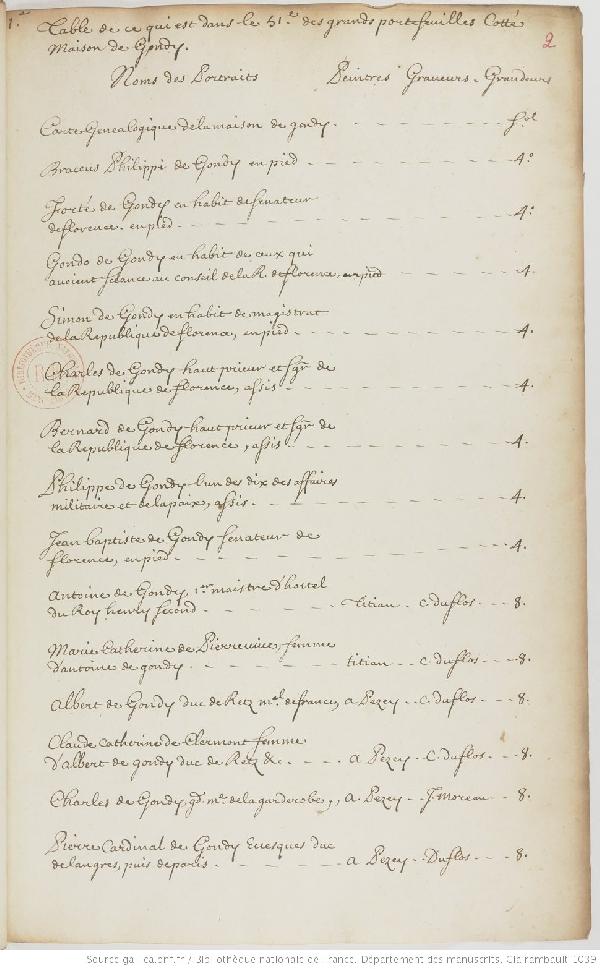 1.re Table de ce qui est dans le 51.e des grands portefeuilles Cotté
Maison de Gondy.
2
Noms des Portraits Peintres Graveurs - Grandeurs
Carte Genealogique de la maison de gondy. - - - fol
Braccus Philippi de Gondy en pied - - - 4.o
Forté de Gondy en habit de senateur
de florence. en pied - - - 4.o
Gondo de Gondy en habit de ceux qui
avoient seance au conseil de la R. de florence, en pied - - - 4.
Simon de Gondy en habit de magistrat
de la Republique de florence, en pied - - - 4.
Charles de Gondy haut prieur et Sgr de
la Republique de florence, assis - - - 4.
Bernard de Gondy haut prieur et Sgr de
la Republique de florence, assis - - - 4.
Philippe de Gondy l'un des dix des affaires
militaire et de la paix, assis. - - - 4.
Jean baptiste de Gondy senateur de
florence, en pied - - - 4.
Antoine de Gondy, 1.er maistre d'hostel
du Roy henry second - - - Titian - C. duflos - - - 8.
Marie Catherine de Pierrevive, femme
d'antoine de gondy. - - - titian - - C. duflos - - - 8.
Albert de Gondy duc de Retz m.al de france, A Pezey - - C. duflos - - - 8.
Claude Catherine de Clermont femme
d'albert de gondy duc de Retz &c. - - - A Pezey - C. duflos - - - 8.
Charles de Gondy, gd. me. de la garderobe, A. Pezey - - J. moreau - - 8.
Pierre Cardinal de Gondy Evesques duc
de langres, puis de paris - - - A Pezey - Duflos - - - 8.
Source gallica.bnf.fr / Bibliothèque nationale de France. Département des manuscrits. Clairambault 1039